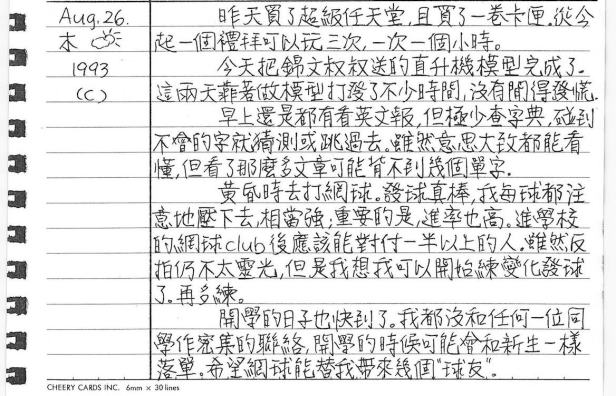 Aug.26.
木
1993
(C)
昨天買了超級任天堂,且買了一卷卡匣.從今
起一個禮拜可以玩三次,一次一個小時。
今天把錦文叔叔送的直升機模型完成了.
這兩天靠著做模型打發了不少時間,沒有閒得發慌.
早上還是都有看英文報,但極少查字典,碰到
不會的字就猜測或跳過去.雖然意思大致都能看
懂,但看了那麼多文章可能背不到幾個單字.
黃昏時去打網球。發球真棒,我每球都注
意地壓下去,相當強;重要的是,進率也高。進學校
的網球club後應該能對付一半以上的人.雖然反
拍仍不太靈光,但是我想我可以開始練變化發球
了.再多練。
開學的日子也快到了.我都沒和任何一位同
學作密集的聯絡,開學的時候可能會和新生一樣
落單.希望網球能替我帶來幾個"球友".
CHEERY CARDS INC. 6mm × 30 lines